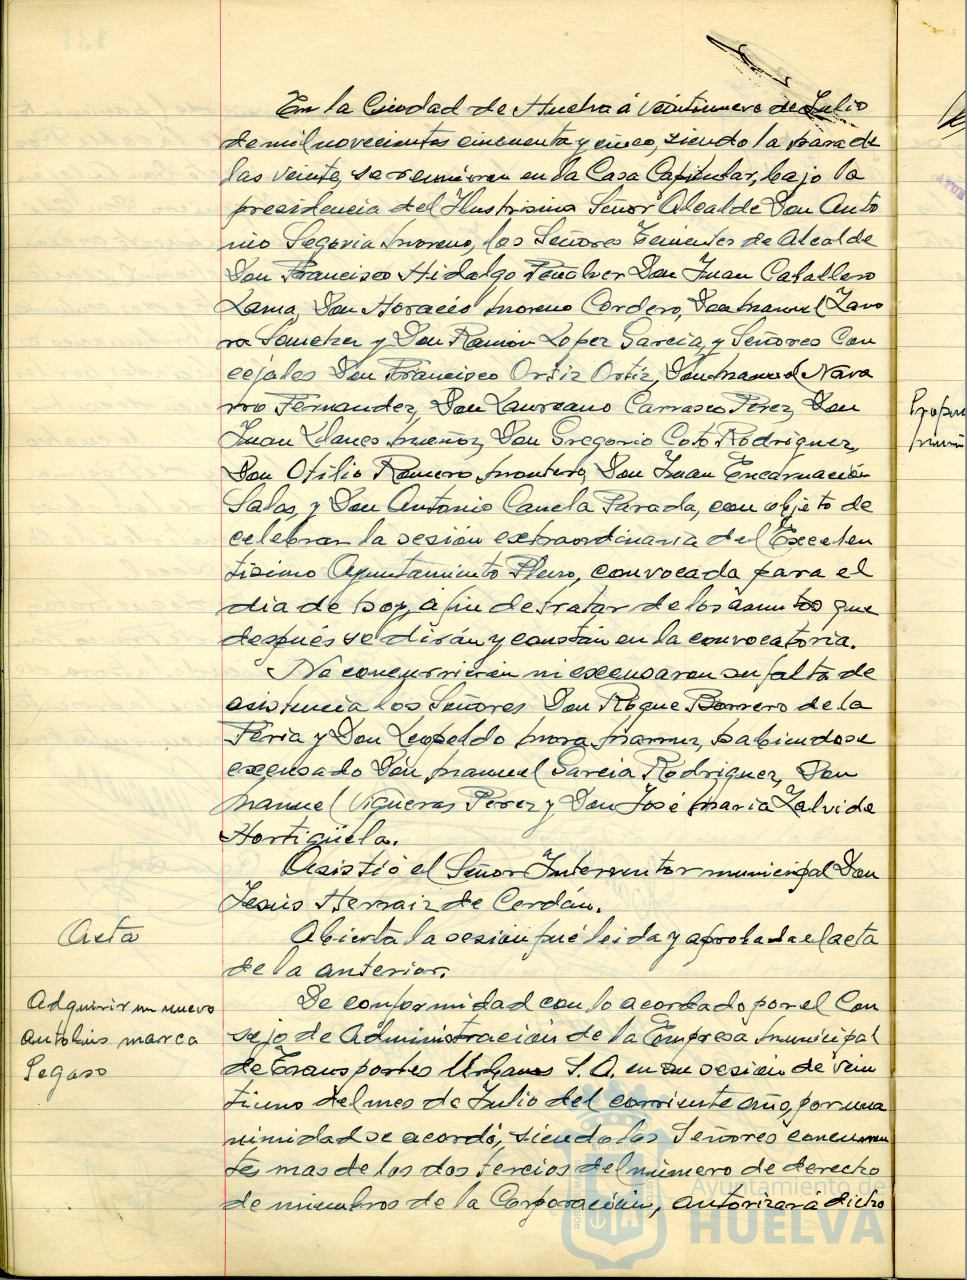 En la Ciudad de Huelva á veintinueve de Julio
de mil novecientos cincuenta y cinco, siendo la hora de
las veinte, se reunieron en la Casa Capitular, bajo la
presidencia del Ilustrisimo Señor Alcalde Don Anto
nio Segovia Moreno, los Señores Tenientes de Alcalde
Don Francisco Hidalgo Peñalver Don Juan Caballero
Lama, Don Horacio Moreno Cordero, Don Manuel Zamo
ra Sanchez y Don Ramón Lopez Garcia, y Señores Con
cejales Don Francisco Ortiz Ortiz, Don Manuel Nava
rro Fernandez, Don Laureano Carrasco Perez, Don
Juan Llanes Muñoz, Don Gregorio Coto Rodriguez,
Don Otilio Romero Montero, Don Juan Encarnación
Salas, y Don Antonio Canela Parada, con objeto de
celebrar la sesión extraordinaria del Excelen
tisimo Ayuntamiento Pleno, convocada para el
dia de hoy, á fin de tratar de los asuntos que
después se dirán y constan en la convocatoria.
No concurrieron ni excusaron su falta de
asistencia los Señores Don Roque Borrero de la
Feria y Don Leopoldo Mora habiendose
excusado Don Manuel Garcia Rodriguez, Don
Manuel Vigueras Perez y Don José Maria Zalvide
Hortigüela.
Asistió el Señor Interventor municipal Don
Jesús Hernaiz de Cerdán.
Acta
Abierta la sesión fué leida y aprobada el acta
de la anterior.
Adquirir un nuevo
autobús marca
Pegaso
De conformidad con lo acordado por el Con
sejo de Administración de la Empresa Municipal
de Transportes Urbanos S.A. en su sesión de vein
tiuno del mes de Julio del corriente año, por una
nimidad se acordó, siendo los Señores concurren
tes mas de los dos tercios del número de derecho
de miembros de la Corporación, autorizar á dicho
Ayuntamiento de
HUELVA